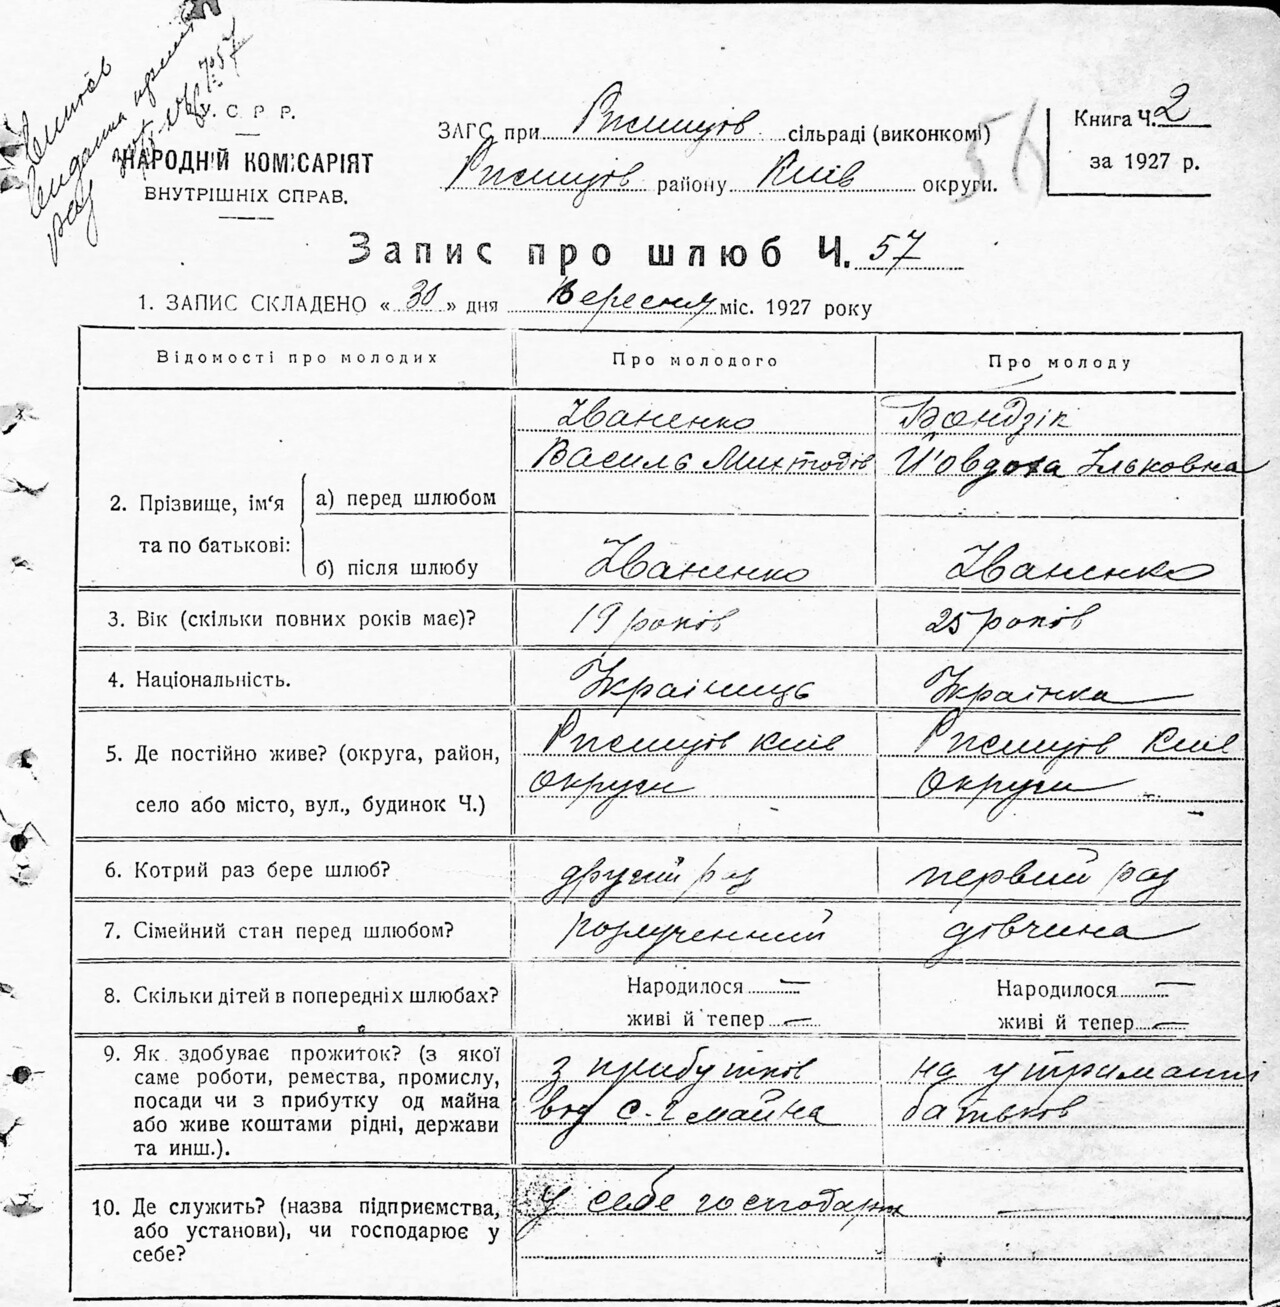 У. С. Р. Р.
НАРОДНІЙ КОМІСАРІЯТ
ВНУТРІШНІХ СПРАВ.
ЗАГС при Ржищов сільраді (виконкомі)
Ржищов району Київ округи.
56
Книга Ч. 2
за 1927 р.
Запис про шлюб Ч. 57
1. ЗАПИС СКЛАДЕНО « 30 » дня Вересня міс. 1927 року
Відомості про молодих Про молодого Про молоду
Іваненко Бондзік
Василь Методів Йовдоха Ільковна
2. Прізвище, ім‘я та по батькові:
а) перед шлюбом
б) після шлюбу Іваненко Іваненко
3. Вік (скільки повних років має)? 19 років 25 років
4. Національність. Українець Українка
5. Де постійно живе? (округа, район, Ржищов Київ Ржищов Київ
село або місто, вул., будинок Ч.) округи округи
6. Котрий раз бере шлюб? другий раз первий раз
7. Сімейний стан перед шлюбом? розлученний дівчина
8. Скільки дітей в попередніх шлюбах? Народилося — Народилося —
живі й тепер — живі й тепер —
9. Як здобуває прожиток? (з якої з прибутків на утриманні
саме роботи, ремества, промислу,
посади чи з прибутку од майна від с-г майна батьков
або живе коштами рідні, держави
та инш.).
10. Де служить? (назва підприємства, у себе господарж —
або установи), чи господарює у
себе?